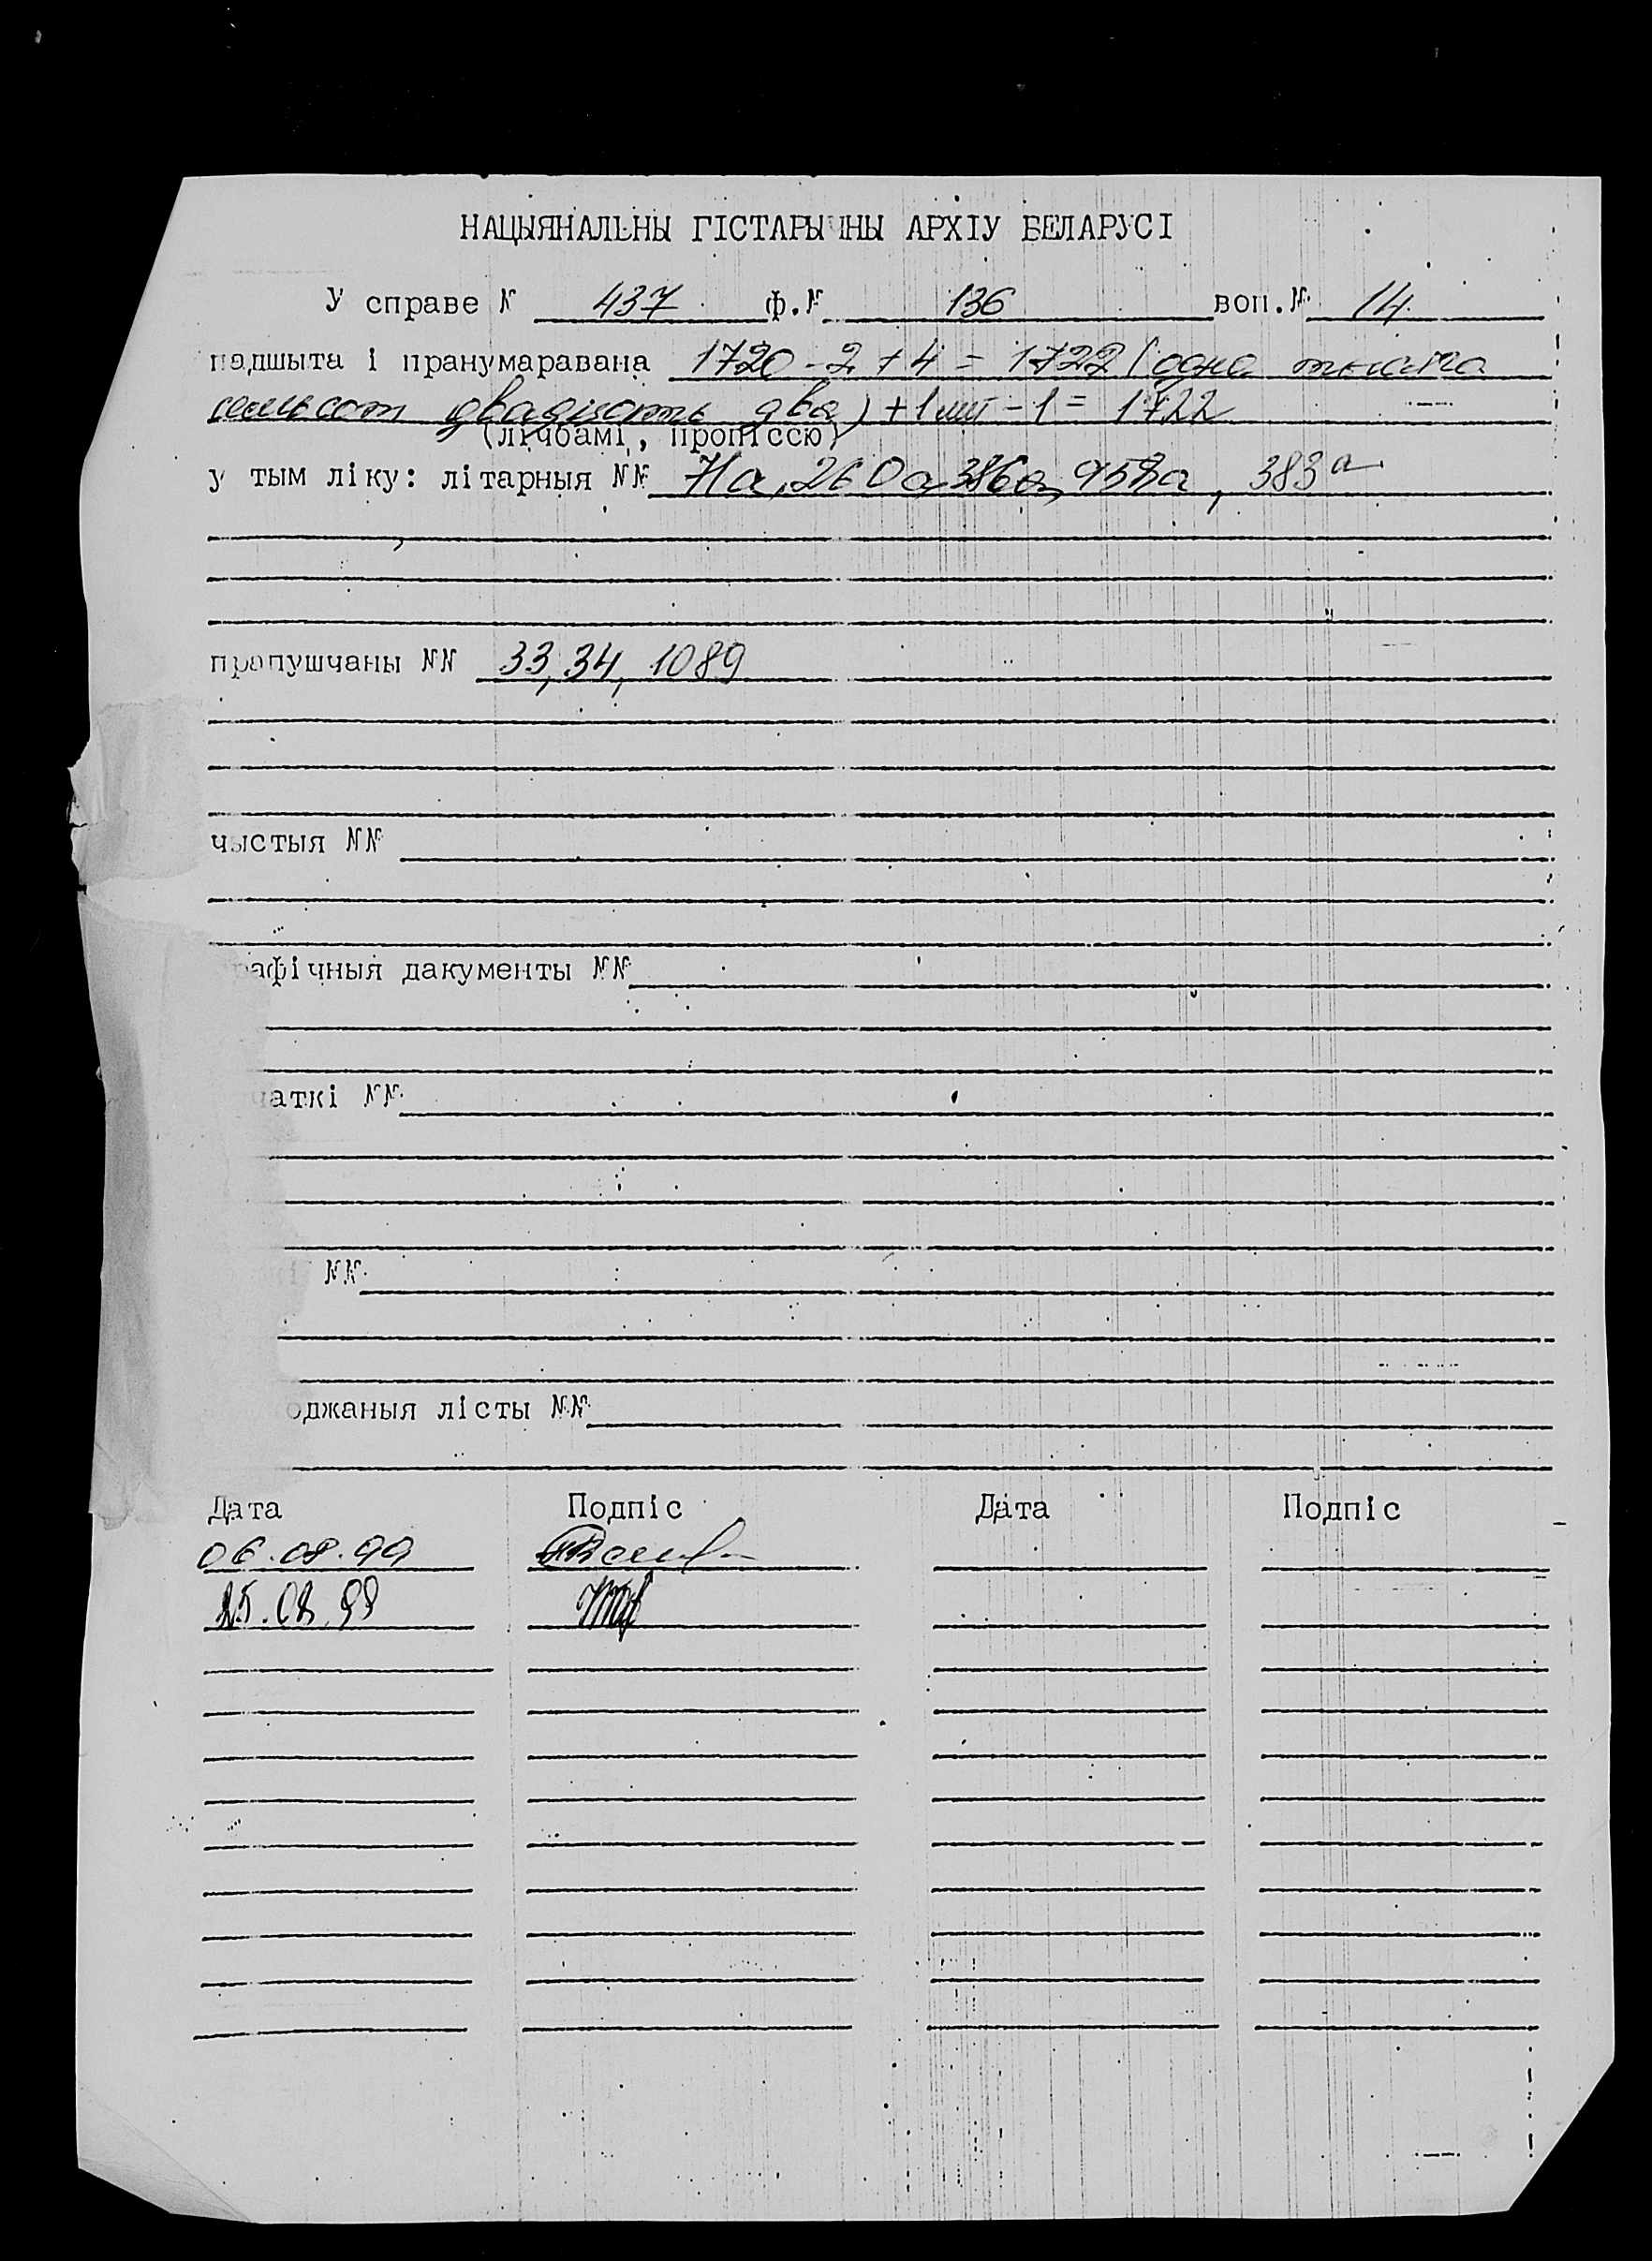 НАЦЫЯНАЛЬНЫ ГІСТАРЫЧНЫ АРХІУ БЕЛАРУСІ
У справе № 437 ф.№ 136 воп.№ 14
падшыта і пранумаравана 1720 - 2 + 4 = 1722 (одна тысяча
семьсот двадцать два) + 1 лит - 1 = 1722
(лічбамі, пропіссю)
у тым ліку: літарныя №№ 71а, 260а, 386а, 958а, 383а
прапушчаны №№ 33, 34, 1089
чыстыя №№
рафічныя дакументы №№
чаткі №№
№№
оджаныя лісты №№
Дата Подпіс Дата Подпіс
06.08.99
25.08.99